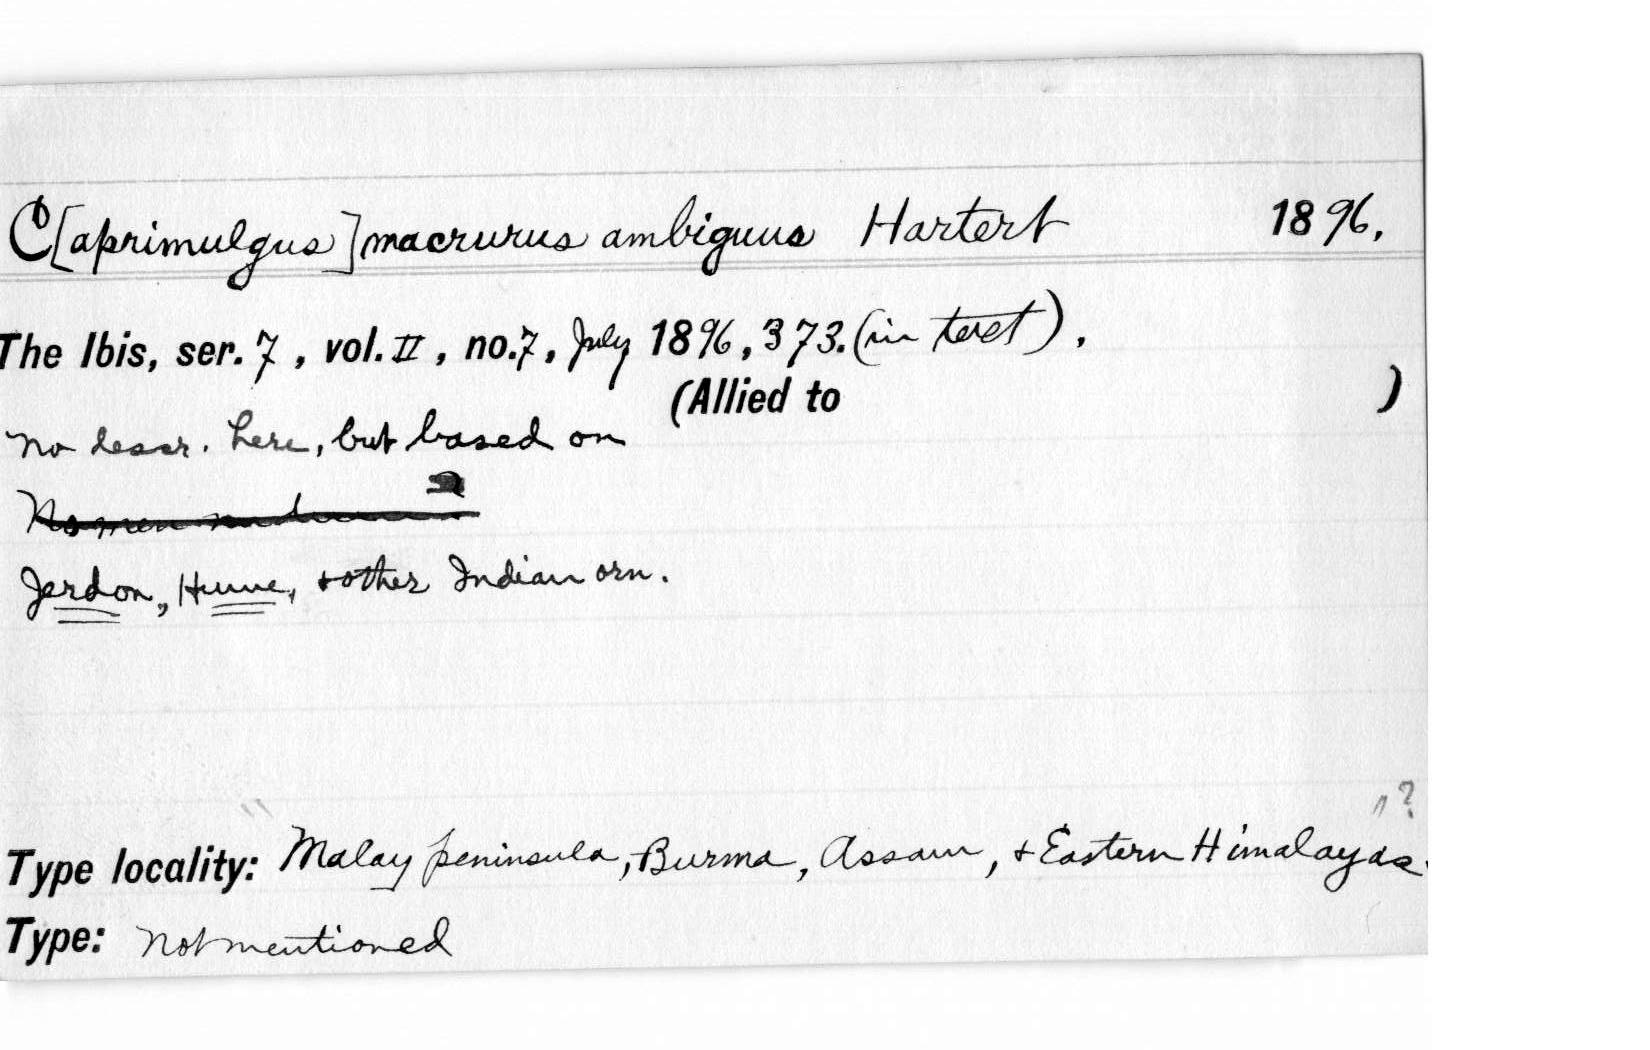 C[aprimulgus] macrurus ambiguus Hartert 1896.
The Ibis, ser. 7, vol. II, no. 7, July 1896, 373. (in text).
(Allied to )
No descr. here, but based on
Nomen nudum
Jerdon, Hume, + other Indian orn.
" "?
Type locality: Malay peninsula, Burma, Assam, + Eastern Himalayas.
Type: Not mentioned